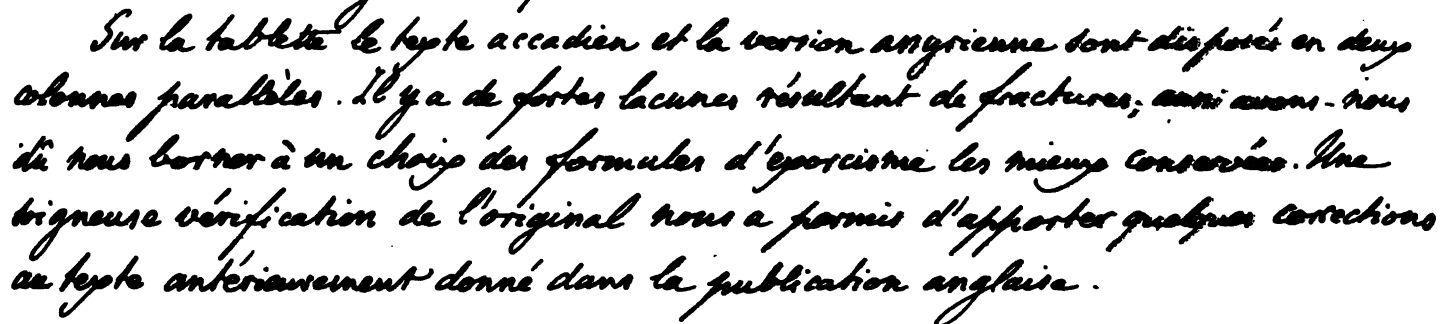 Sur la tablette le texte accadien et la version assyrienne sont disposés en deux
colonnes parallèles. Il y a de fortes lacunes résultant de fractures; aussi avons-nous
dû nous borner à un choix des formules d'exorcisme les mieux conservées. Une
soigneuse vérification de l'original nous a permis d'apporter quelques corrections
au texte antérieurement donné dans la publication anglaise.